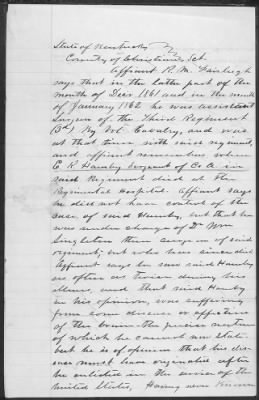 State of Kentucky
County of Christian Sct.
Affiant R. M. Fairleigh
says that in the latter part of the
month of Decr 1861 and in the month
of January 1862 he was assistant
Surgeon of the Third Regiment
(3d) Ky Vol Cavalry, and was
at that time with said regiment,
and affiant remembers when
C R Hamby Sergeant of Co A in
said Regiment died at the
Regimental Hospital. Affiant says
he did not have control of the
case of said Hamby, but that he
was under charge of Dr Wm
Singleton then surgeon of said
regiment, but who has since died
Affiant says he saw said Hamby
as often as twice during his
illness, and that said Hamby
in his opinion, was suffering
from some disease or affection
of the brain—the precise nature
of which he cannot now state
but he is of opinion that his dis-
ease must have originated after
he enlisted in the service of the
United States, Having never known